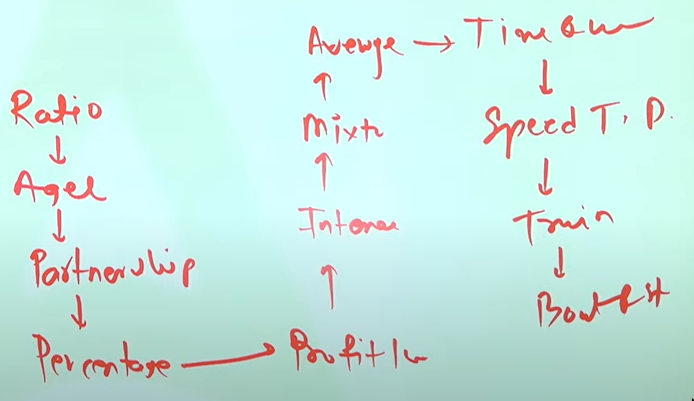 Ratio
Ages
Partnership
Percentage
Profit
Interes
Mixtr
Average
Time &
Speed T, D.
Train
Boat & st